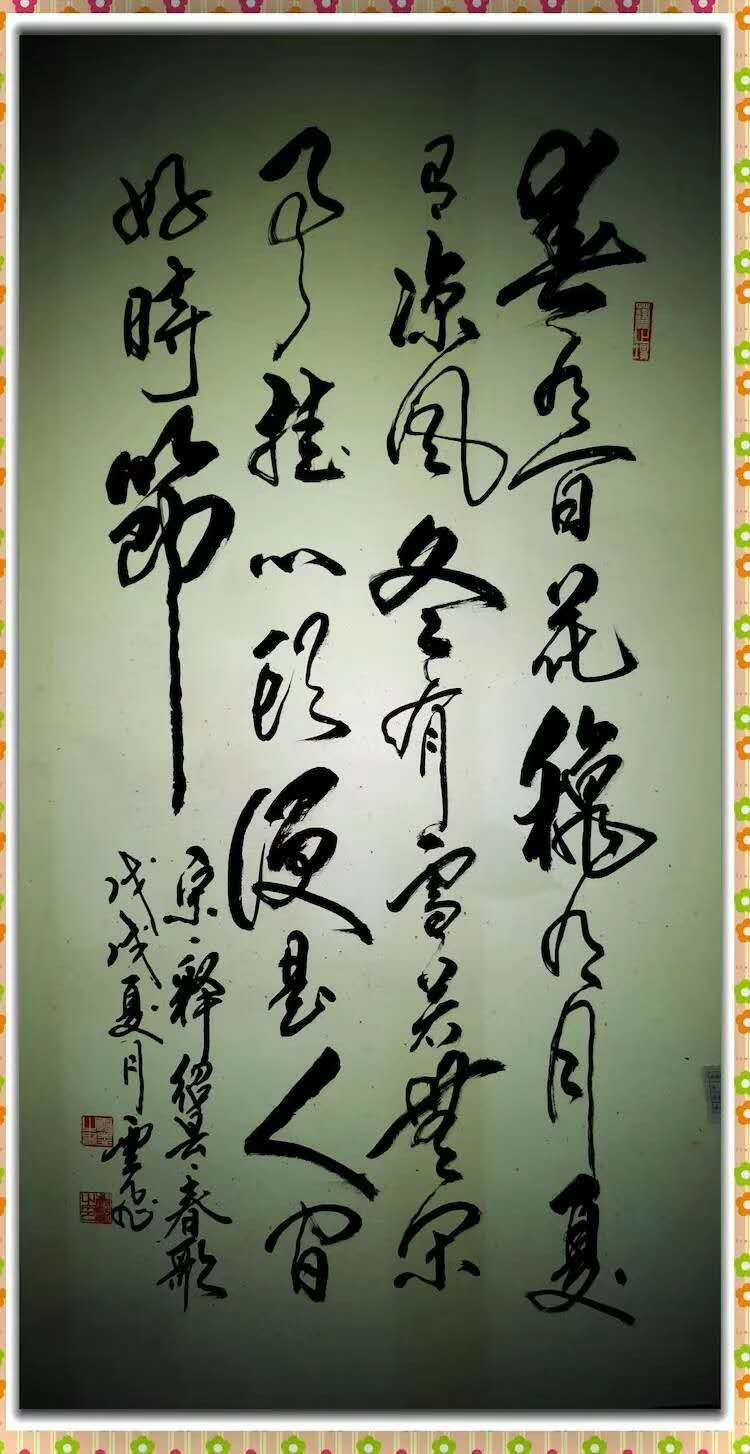 春有百花穐有月夏
有涼風冬有雪若無閑
事挂心頭便是人間
好時節
宋、釋紹昙、春歌
戊戌夏月雲飛